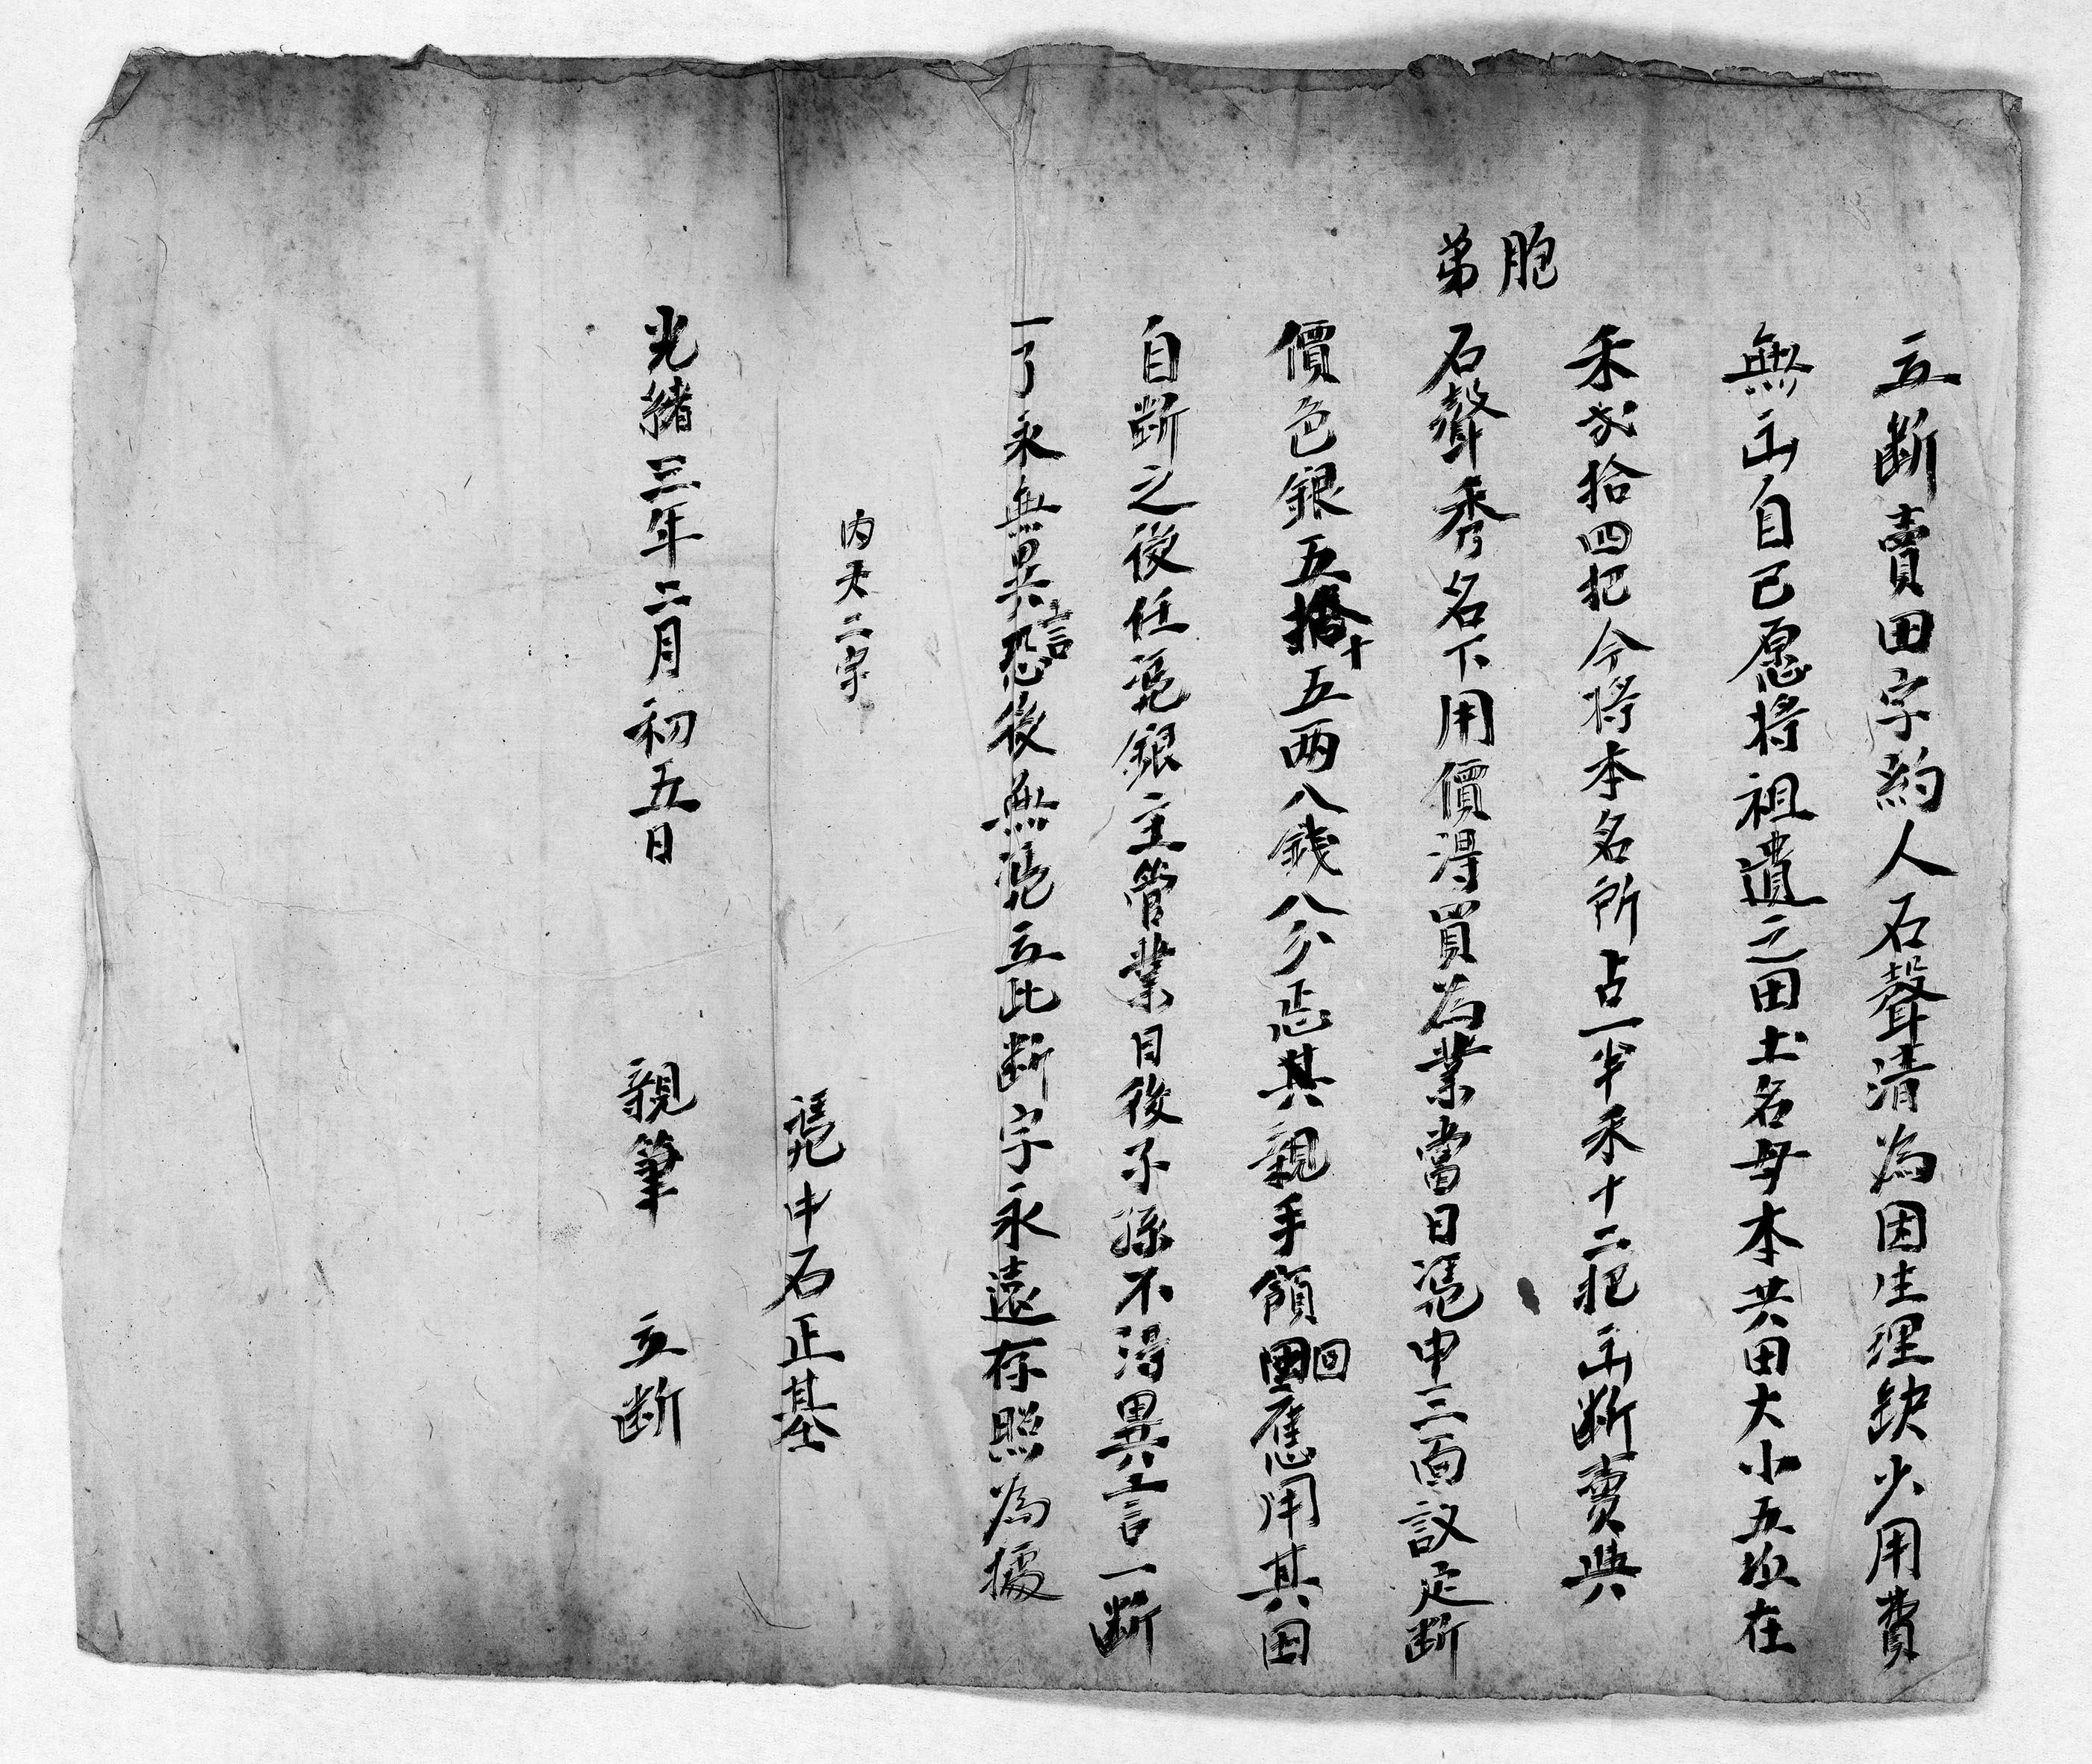 立断賣田字約人石聲清為因生理缺少用費
無出自己愿將祖遺之田土名母本共田大小五坵在
禾弍拾四把今将本名所占一半禾十二把出断賣與
胞弟
石聲秀名下用價得買為業當日凴中三面議定断
價色銀五十五両八錢八分整其親手領回應用其田
自断之後任凴銀主管業日後子孫不得異言一断
一了永無異言恐後無凴立此断字永遠存照為據
内天二字
凴中石正基
光緒三年二月初五日 親筆 立断